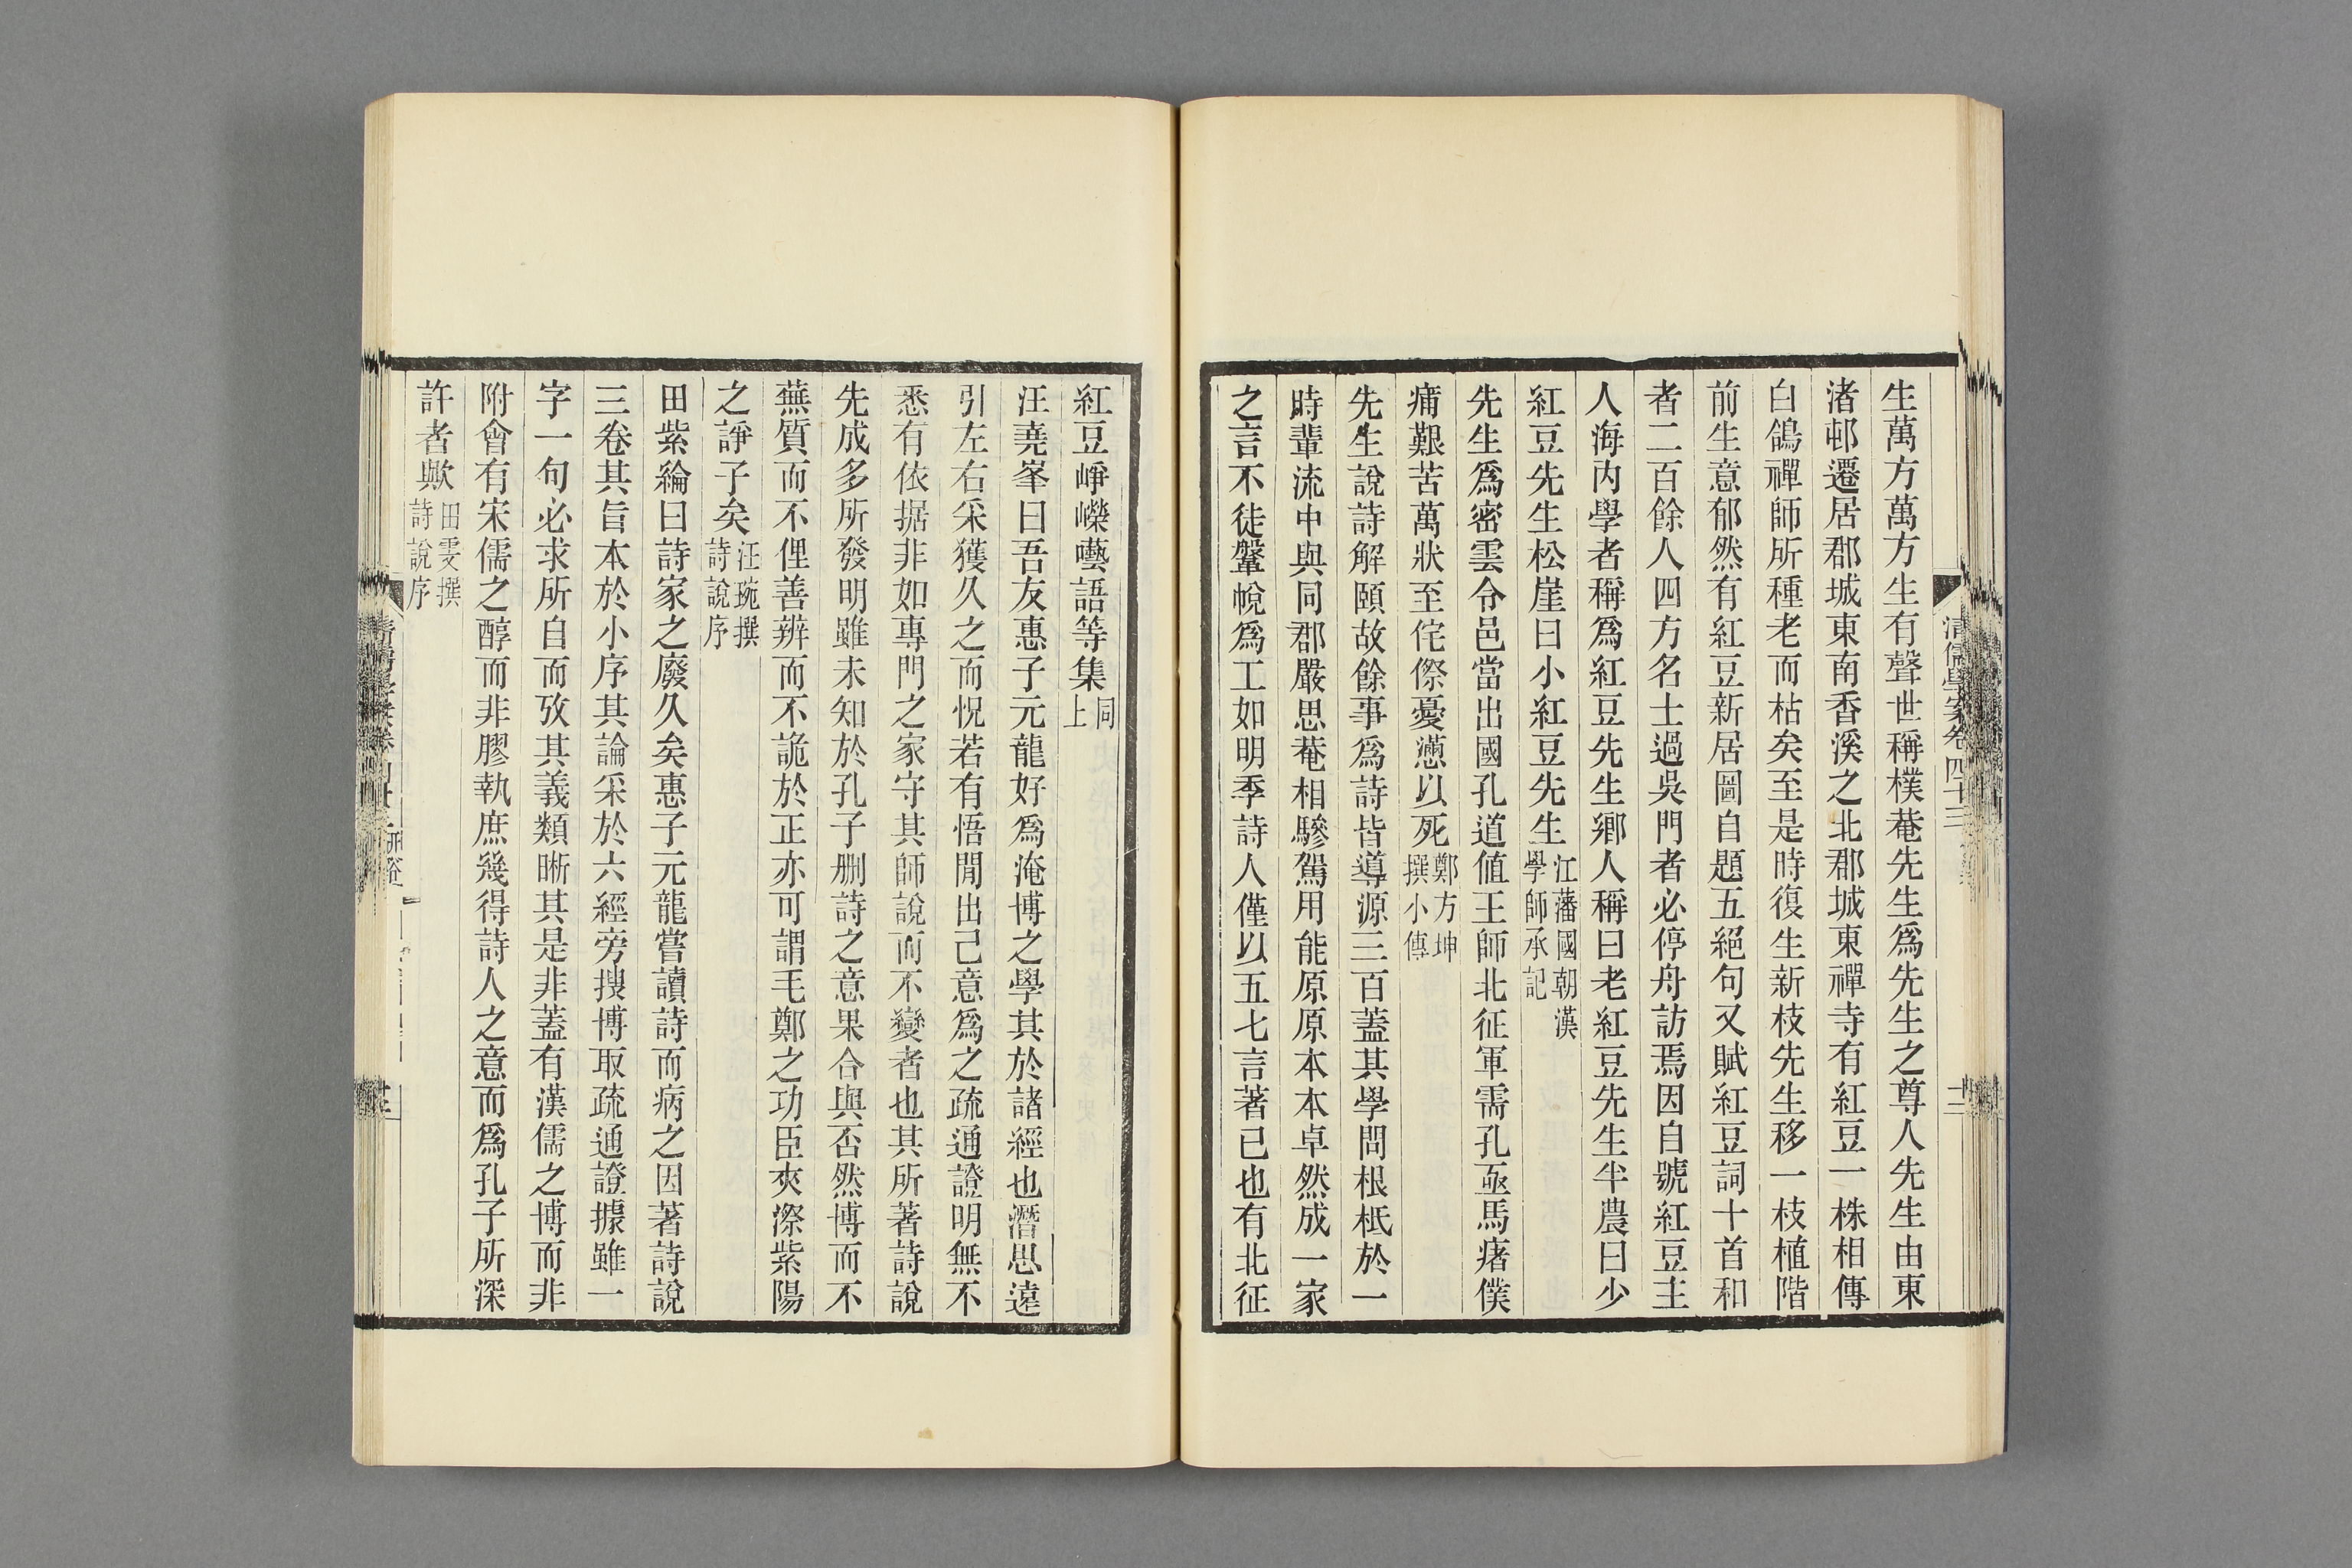 清儒學案卷四十三
十二
生萬方萬方生有聲世稱樸菴先生爲先生之尊人先生由東
渚邨遷居郡城東南香溪之北郡城東禪寺有紅豆一株相傳
白鴿禪師所種老而枯矣至是時復生新枝先生移一枝植階
前生意郁然有紅豆新居圖自題五絕句又賦紅豆詞十首和
者二百餘人四方名士過吳門者必停舟訪焉因自號紅豆主
人海內學者稱爲紅豆先生鄉人稱曰老紅豆先生半農曰少
紅豆先生松崖曰小紅豆先生江藩國朝漢學師承記
先生爲密雲令邑當出國孔道值王師北征軍需孔亟馬瘏僕
痡艱苦萬狀至侘傺憂懣以死鄭方坤撰小傳
先生說詩解頤故餘事爲詩皆導源三百蓋其學問根柢於一
時輩流中與同郡嚴思菴相驂駕用能原原本本卓然成一家
之言不徒鞶帨爲工如明季詩人僅以五七言著已也有北征
紅豆崢嶸囈語等集同上
汪堯峯曰吾友惠子元龍好爲淹博之學其於諸經也潛思遠
引左右采獲久之而怳若有悟閒出己意爲之疏通證明無不
悉有依据非如專門之家守其師說而不變者也其所著詩說
先成多所發明雖未知於孔子删詩之意果合與否然博而不
蕪質而不俚善辨而不詭於正亦可謂毛鄭之功臣夾漈紫陽
之諍子矣汪琬撰詩說序
田紫綸曰詩家之廢久矣惠子元龍嘗讀詩而病之因著詩說
三卷其旨本於小序其論采於六經旁搜博取疏通證據雖一
字一句必求所自而攷其義類晰其是非蓋有漢儒之博而非
附會有宋儒之醇而非膠執庶幾得詩人之意而爲孔子所深
許者歟田雯撰詩說序